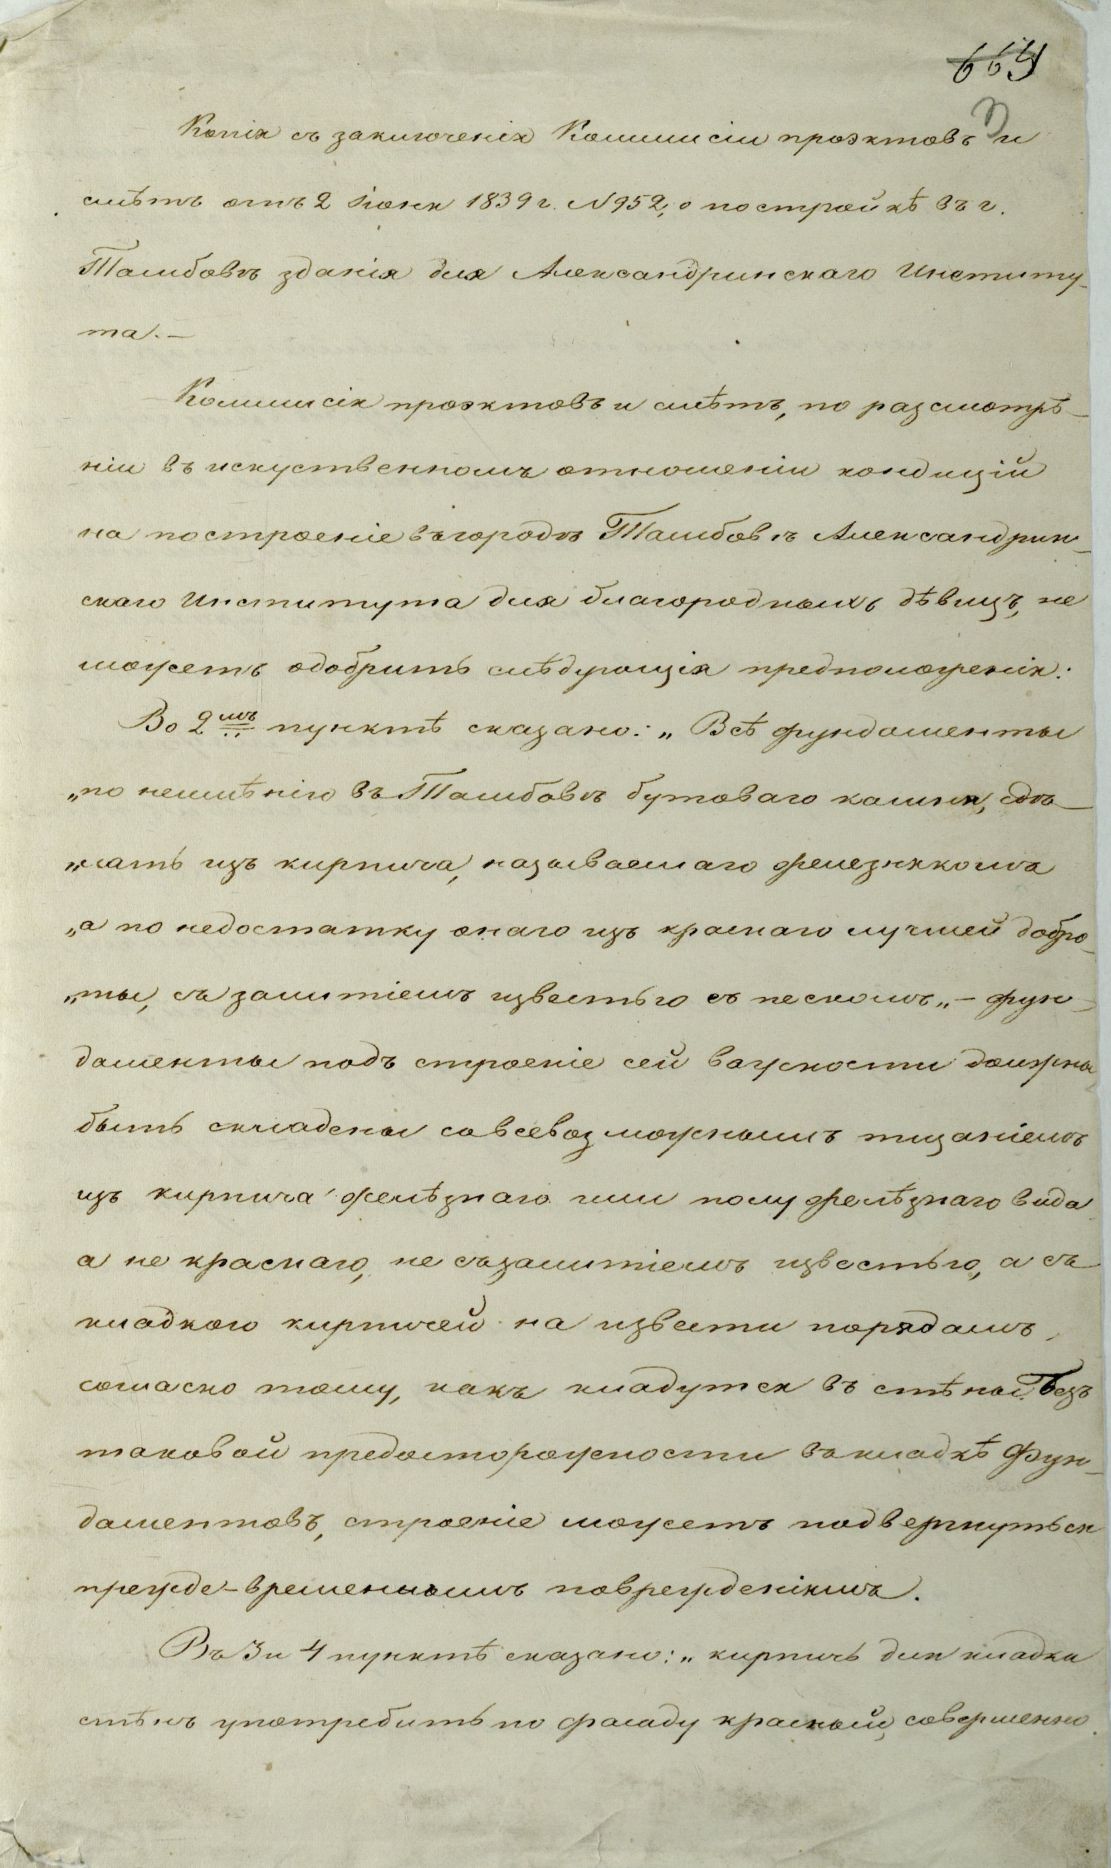 664
Копія съ заключенія Коммисіи проэктовъ и
смѣтъ отъ 2 Іюня 1839 г. № 952, о постройкѣ въ г.
Тамбовѣ зданія для Александринскаго Институ-
та.—
Коммисія проэктовъ и смѣтъ, по разсмотрѣ-
ніи въ искуственномъ отношеніи кондицій
на построеніе въ городѣ Тамбовѣ Александрин-
скаго Института для благородныхъ дѣвицъ, не
можетъ одобрить слѣдующія предположенія:
Во 2мъ пунктѣ сказано: „Всѣ фундаменты
„по неимѣнію въ Тамбовѣ бутоваго камня, сдѣ-
„лать изъ кирпича, называемаго железнякомъ
„а по недостатку онаго изъ краснаго лучшей добро-
„ты, съ залитіемъ известью съ пескомъ„ — фун-
даменты подъ строеніе сей важности должны
быть складены совсевозможнымъ тщаніемъ
изъ кирпича желѣзнаго или полужелѣзнаго вида
а не краснаго, не съ залитіемъ известью, а съ
кладкою кирпичей на извести порядамъ,
согласно тому, какъ кладутся въ стѣны. Безъ
таковой предосторожности въ кладкѣ фун-
даментовъ, строеніе можетъ подвергнуться
прежде-временнымъ поврежденіямъ.
Въ 3 и 4 пунктѣ сказано: „кирпичъ для кладки
стѣнъ употребить по фасаду красный, совершенно